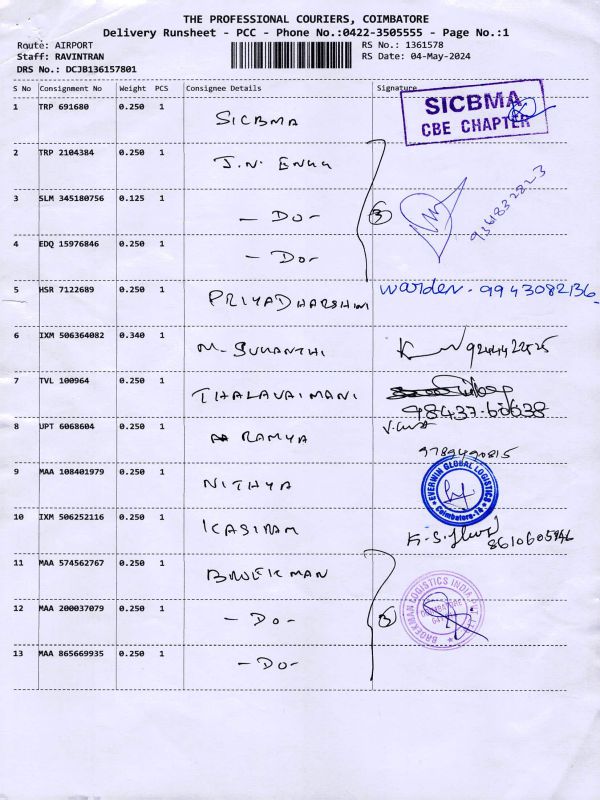 THE PROFESSIONAL COURIERS, COIMBATORE
Delivery Runsheet - PCC - Phone No.:0422-3505555 - Page No.:1
Route: AIRPORT
Staff: RAVINTRAN
DRS No.: DCJB136157801
RS No.: 1361578
RS Date: 04-May-2024
S No Consignment No Weight PCS Consignee Details Signature
1 TRP 691680 0.250 1 SICBMA SICBMA
CBE CHAPTER
2 TRP 2104384 0.250 1 J.N. ENGG
3 SLM 345180756 0.125 1 - DO - 3 9361832823
4 EDQ 15976846 0.250 1 - DO -
5 HSR 7122689 0.250 1 PRIYADHARSHINI Warden - 9943082136
6 IXM 506364082 0.340 1 M- SUKANTHI 9244422525
7 TVL 100964 0.250 1 THALAVAIMANI
98437-60638
8 UPT 6068604 0.250 1 RAMYA
9789490815
9 MAA 108401979 0.250 1 NITHYA EVERWIN GLOBAL LOGISTICS
Coimbatore-14
10 IXM 506252116 0.250 1 KASIRAM K-S.
8610605946
11 MAA 574562767 0.250 1 BROEKMAN
12 MAA 200037079 0.250 1 - DO - 3 BROEKMAN LOGISTICS INDIA PVT. LTD.
COIMBATORE
13 MAA 865669935 0.250 1 - DO -